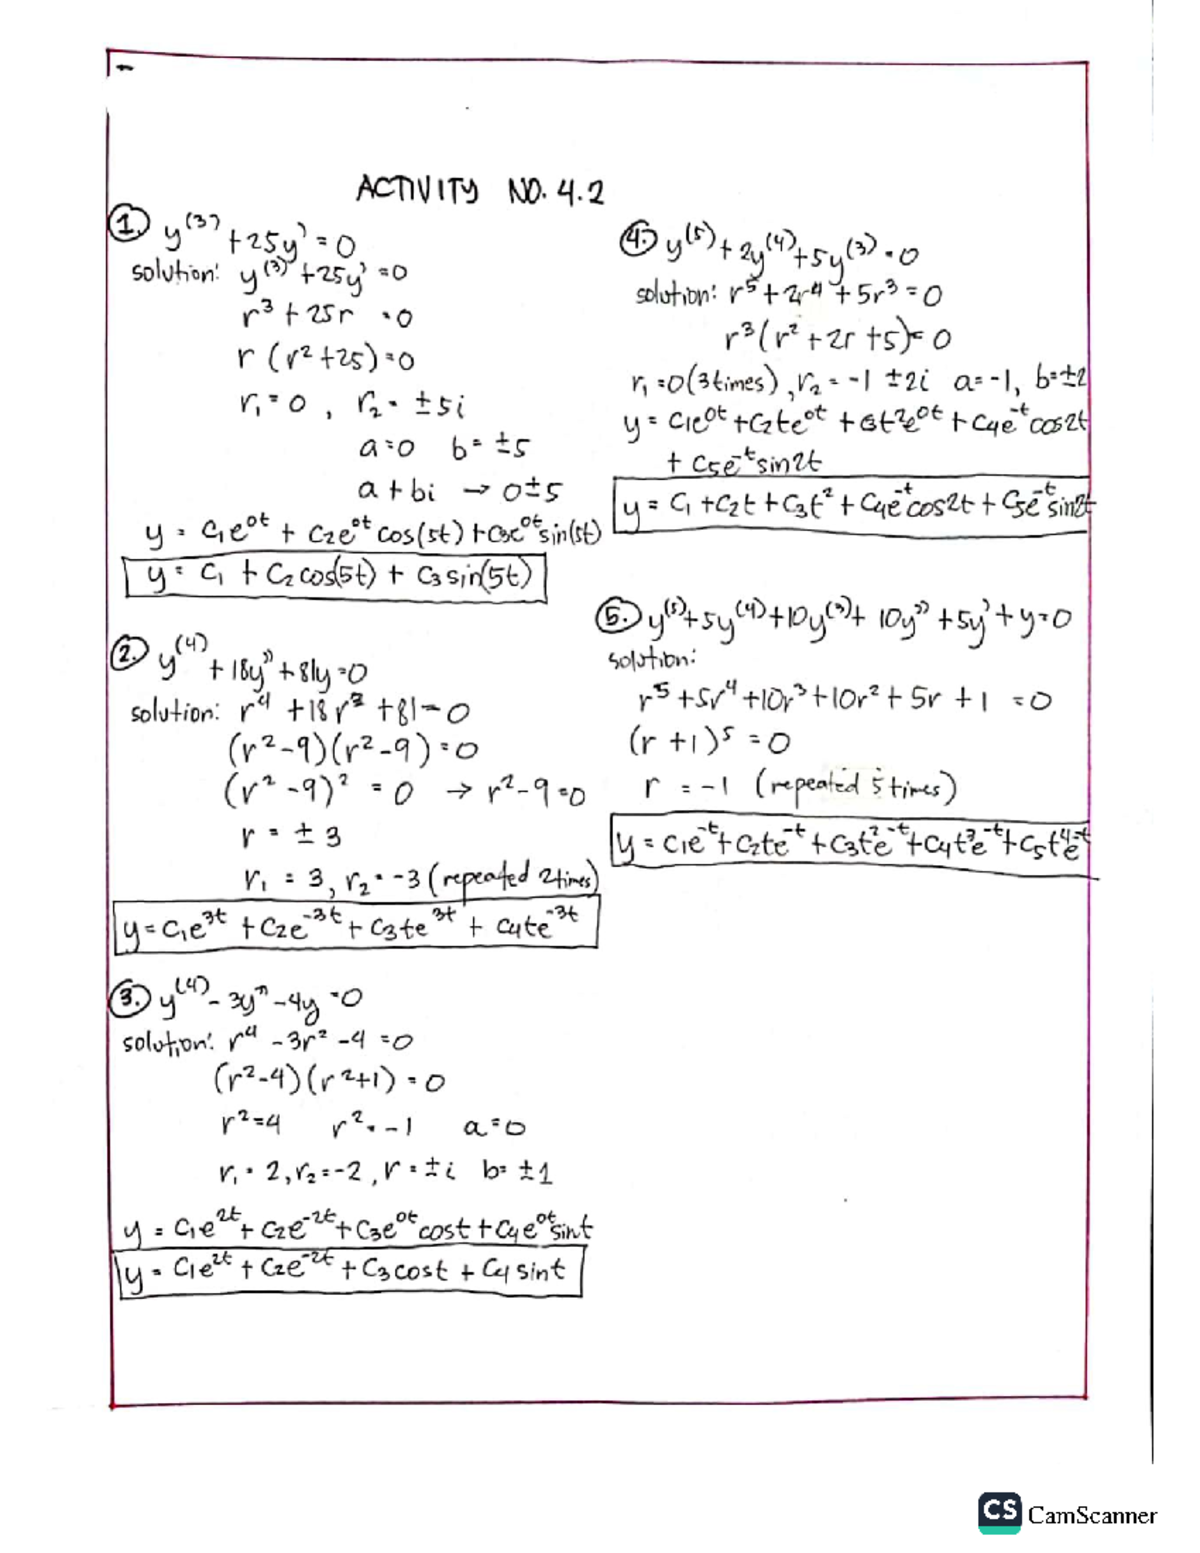 ACTIVITY NO. 4.2
1. y⁽³⁾ + 25y' = 0
solution: y⁽³⁾ + 25y' = 0
r³ + 25r = 0
r (r² + 25) = 0
r₁ = 0 , r₂ = ±5i
a = 0 b = ±5
a + bi → 0 ± 5
y = C₁e⁰ᵗ + C₂e⁰ᵗ cos(5t) + C₃e⁰ᵗ sin(5t)
y = C₁ + C₂ cos(5t) + C₃ sin(5t)
2. y⁽⁴⁾ + 18y'' + 81y = 0
solution: r⁴ + 18r² + 81 = 0
(r² - 9)(r² - 9) = 0
(r² - 9)² = 0 → r² - 9 = 0
r = ± 3
r₁ = 3, r₂ = -3 (repeated 2times)
y = C₁e³ᵗ + C₂e⁻³ᵗ + C₃te³ᵗ + C₄te⁻³ᵗ
3. y⁽⁴⁾ - 3y'' - 4y = 0
solution: r⁴ - 3r² - 4 = 0
(r² - 4)(r² + 1) = 0
r² = 4 r² = -1 a = 0
r₁ = 2, r₂ = -2, r = ±i b = ±1
y = C₁e²ᵗ + C₂e⁻²ᵗ + C₃e⁰ᵗ cost + C₄e⁰ᵗ sint
y = C₁e²ᵗ + C₂e⁻²ᵗ + C₃cost + C₄ sint
4. y⁽⁵⁾ + 2y⁽⁴⁾ + 5y⁽³⁾ = 0
solution: r⁵ + 2r⁴ + 5r³ = 0
r³(r² + 2r + 5) = 0
r₁ = 0 (3times), r₂ = -1 ± 2i a = -1, b = ±2
y = C₁e⁰ᵗ + C₂te⁰ᵗ + C₃t²e⁰ᵗ + C₄e⁻ᵗcos2t
+ C₅e⁻ᵗsin2t
y = C₁ + C₂t + C₃t² + C₄e⁻ᵗcos2t + C₅e⁻ᵗsin2t
5. y⁽⁵⁾ + 5y⁽⁴⁾ + 10y⁽³⁾ + 10y'' + 5y' + y = 0
solution:
r⁵ + 5r⁴ + 10r³ + 10r² + 5r + 1 = 0
(r + 1)⁵ = 0
r = -1 (repeated 5times)
y = C₁e⁻ᵗ + C₂te⁻ᵗ + C₃t²e⁻ᵗ + C₄t³e⁻ᵗ + C₅t⁴e⁻ᵗ
CS CamScanner